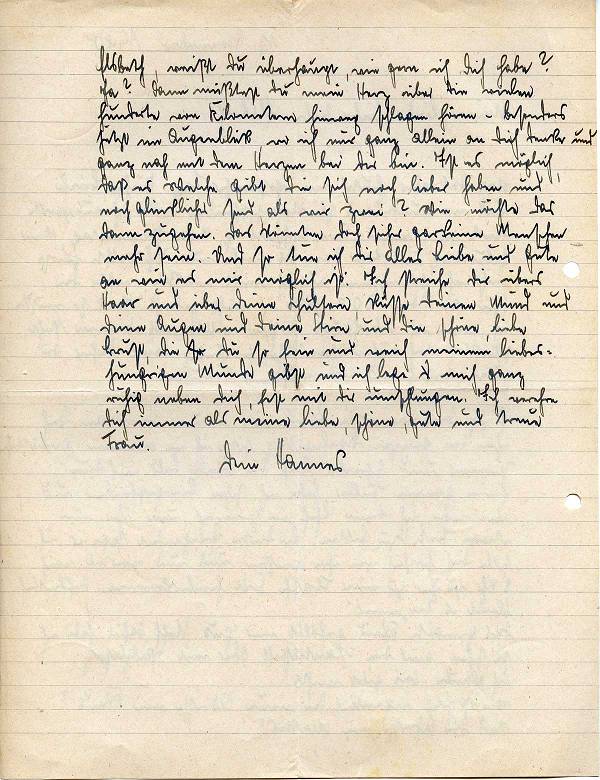 Elsbeth, weißt Du überhaupt, wie gern ich Dich habe?
Ja? Dann müßtest Du mein Herz über die vielen
hunderte von Kilometern hinweg schlagen hören - besonders
jetzt im Augenblick wo ich nur ganz allein an Dich denke und
ganz nah mit dem Herzen bei Dir bin. Ist es möglich,
daß es Welche gibt die sich noch lieber haben und
noch glücklicher sind als wir zwei? Wie möchte das
dann zugehen. Das könnten doch sicher garkeine Menschen
mehr sein. Und so tue ich Dir alles Liebe und Gute
an wie es mir möglich ist. Ich streiche Dir übers
Haar und über Deine Schultern, küsse Deinen Mund und
Deine Augen und Deine Stirn, und die schöne, liebe
Brust, die Du so fein und weich meinem liebes-
hungrigen Munde gibst und ich lege mich ganz
ruhig neben Dich, fest mit Dir umschlungen. Ich verehre
Dich immer als meine liebe, schöne, gute und treue
Frau.
Dein Hannes